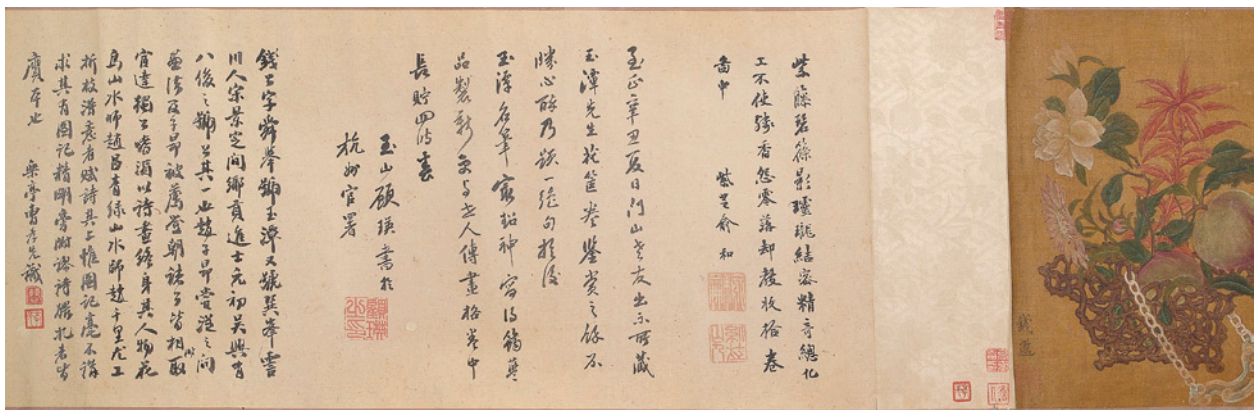 錢選
紫藤碧篠影瓏璁結密精奇總化
工不使殘香怨零落卸教收拾卷
中 紫芝俞和
至正辛丑夏日門山老友出示所藏
玉潭先生花筐卷鑒賞之餘不
勝心醉乃題一絕句於後
玉潭名筆最超神寫得筐
品製新与世人傳畫格卷中
長貯四時春
玉山顧瑛書於
杭州官署
錢公字舜舉號玉潭又號巽峯霅
川人宋景定間鄉貢進士元初吳興有
八俊之號公其一也趙子昂嘗從之問
畫法及子昂被薦登朝諸子皆相附以取
宦達獨公嗜酒以詩畫終身其人物花
鳥山水師趙昌青綠山水師趙千里尤工
折枝得意者賦詩其上惟圖記毫不講
求其有圖記精明旁附謬詩札者皆
贋本也 樂亭曹先識